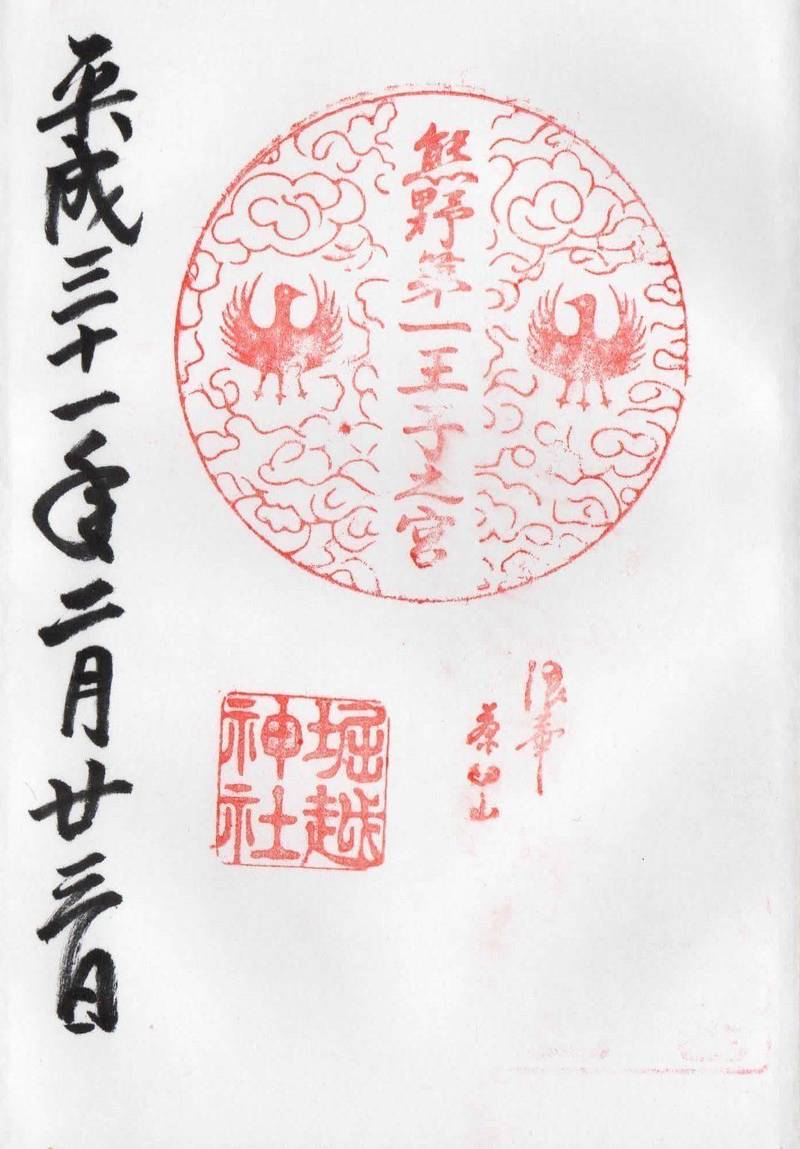 熊野第一王子之宮
浪華
茶臼山
堀越
神社
平成三十一年二月廿三日